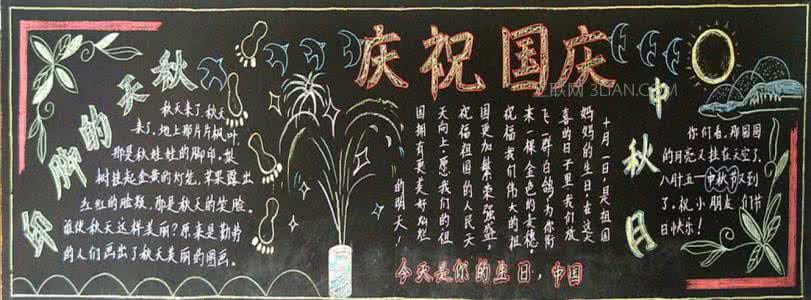 秋天的脚印
秋天来了,秋天
来了,地上那片片枫叶,
那是秋娃娃的脚印。梨
树挂起金黄的灯笼,苹果露出
红红的脸颊,那是秋天的笑脸。
谁使秋天这样美丽?原来是勤劳
的人们画出了秋天美丽的图画。
庆祝国庆
十月一日是祖国
妈妈的生日,在这大
喜的日子里,我们放
飞一群白鸽,为你衔
来一棵金色的麦穗。
祝福我们伟大的祖
国更加繁荣强盛,
祝福祖国的人民天
天向上。愿我们的祖
国拥有更美好灿烂
的明天!
今天是你的生日,中国
中秋月
你们看,那圆圆
的月亮又挂在天空了,
八月十五—中秋节又到
了,祝小朋友们节
日快乐!
三联网 3LIAN.COM